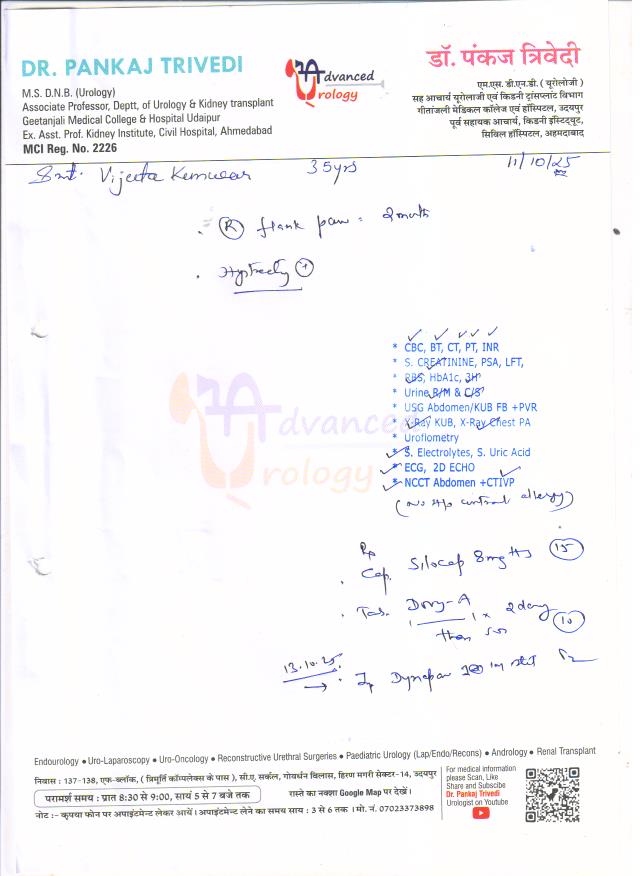 DR. PANKAJ TRIVEDI
M.S. D.N.B. (Urology)
Associate Professor, Deptt. of Urology & Kidney transplant
Geetanjali Medical College & Hospital Udaipur
Ex. Asst. Prof. Kidney Institute, Civil Hospital, Ahmedabad
MCI Reg. No. 2226
Advanced
Urology
डॉ. पंकज त्रिवेदी
एम.एस. डी.एन.डी. ( यूरोलोजी )
सह आचार्य यूरोलाजी एवं किडनी ट्रांसप्लांट विभाग
गीतांजली मेडिकल कॉलेज एवं हॉस्पिटल, उदयपुर
पूर्व सहायक आचार्य, किडनी इंस्टिट्यूट,
सिविल हॉस्पिटल, अहमदाबाद
Smt. Vijeta Kunwar 35yrs 11/10/25
R flank pain 2 month
* CBC, BT, CT, PT, INR
* S. CREATININE, PSA, LFT,
* RBS, HbA1c, 3H
* Urine R/M & C/S
* USG Abdomen/KUB FB +PVR
* X-Ray KUB, X-Ray Chest PA
* Uroflometry
* S. Electrolytes, S. Uric Acid
* ECG, 2D ECHO
* NCCT Abdomen +CTIVP
(No H/o contrast allergy)
Advanced
Urology
Rp
Cap. Silocap 8mg HS 15
Tab. 1 1 x 2 days 10
then SOS
13.10.25
Dynapar stat
Endourology ● Uro-Laparoscopy ● Uro-Oncology ● Reconstructive Urethral Surgeries ● Paediatric Urology (Lap/Endo/Recons) ● Andrology ● Renal Transplant
निवास : 137-138, एफ-ब्लॉक, ( त्रिमूर्ति कॉम्पलेक्स के पास ), सी.ए. सर्कल, गोवर्धन विलास, हिरण मगरी सेक्टर-14, उदयपुर
परामर्श समय : प्रात 8:30 से 9:00, सायं 5 से 7 बजे तक
रास्ते का नक्शा Google Map पर देखें।
नोट :- कृपया फोन पर अपाइंटमेन्ट लेकर आयें। अपाइंटमेन्ट लेने का समय साय : 3 से 6 तक । मो. नं. 07023373898
For medical information
please Scan, Like
Share and Subscibe
Dr. Pankaj Trivedi
Urologist on Youtube